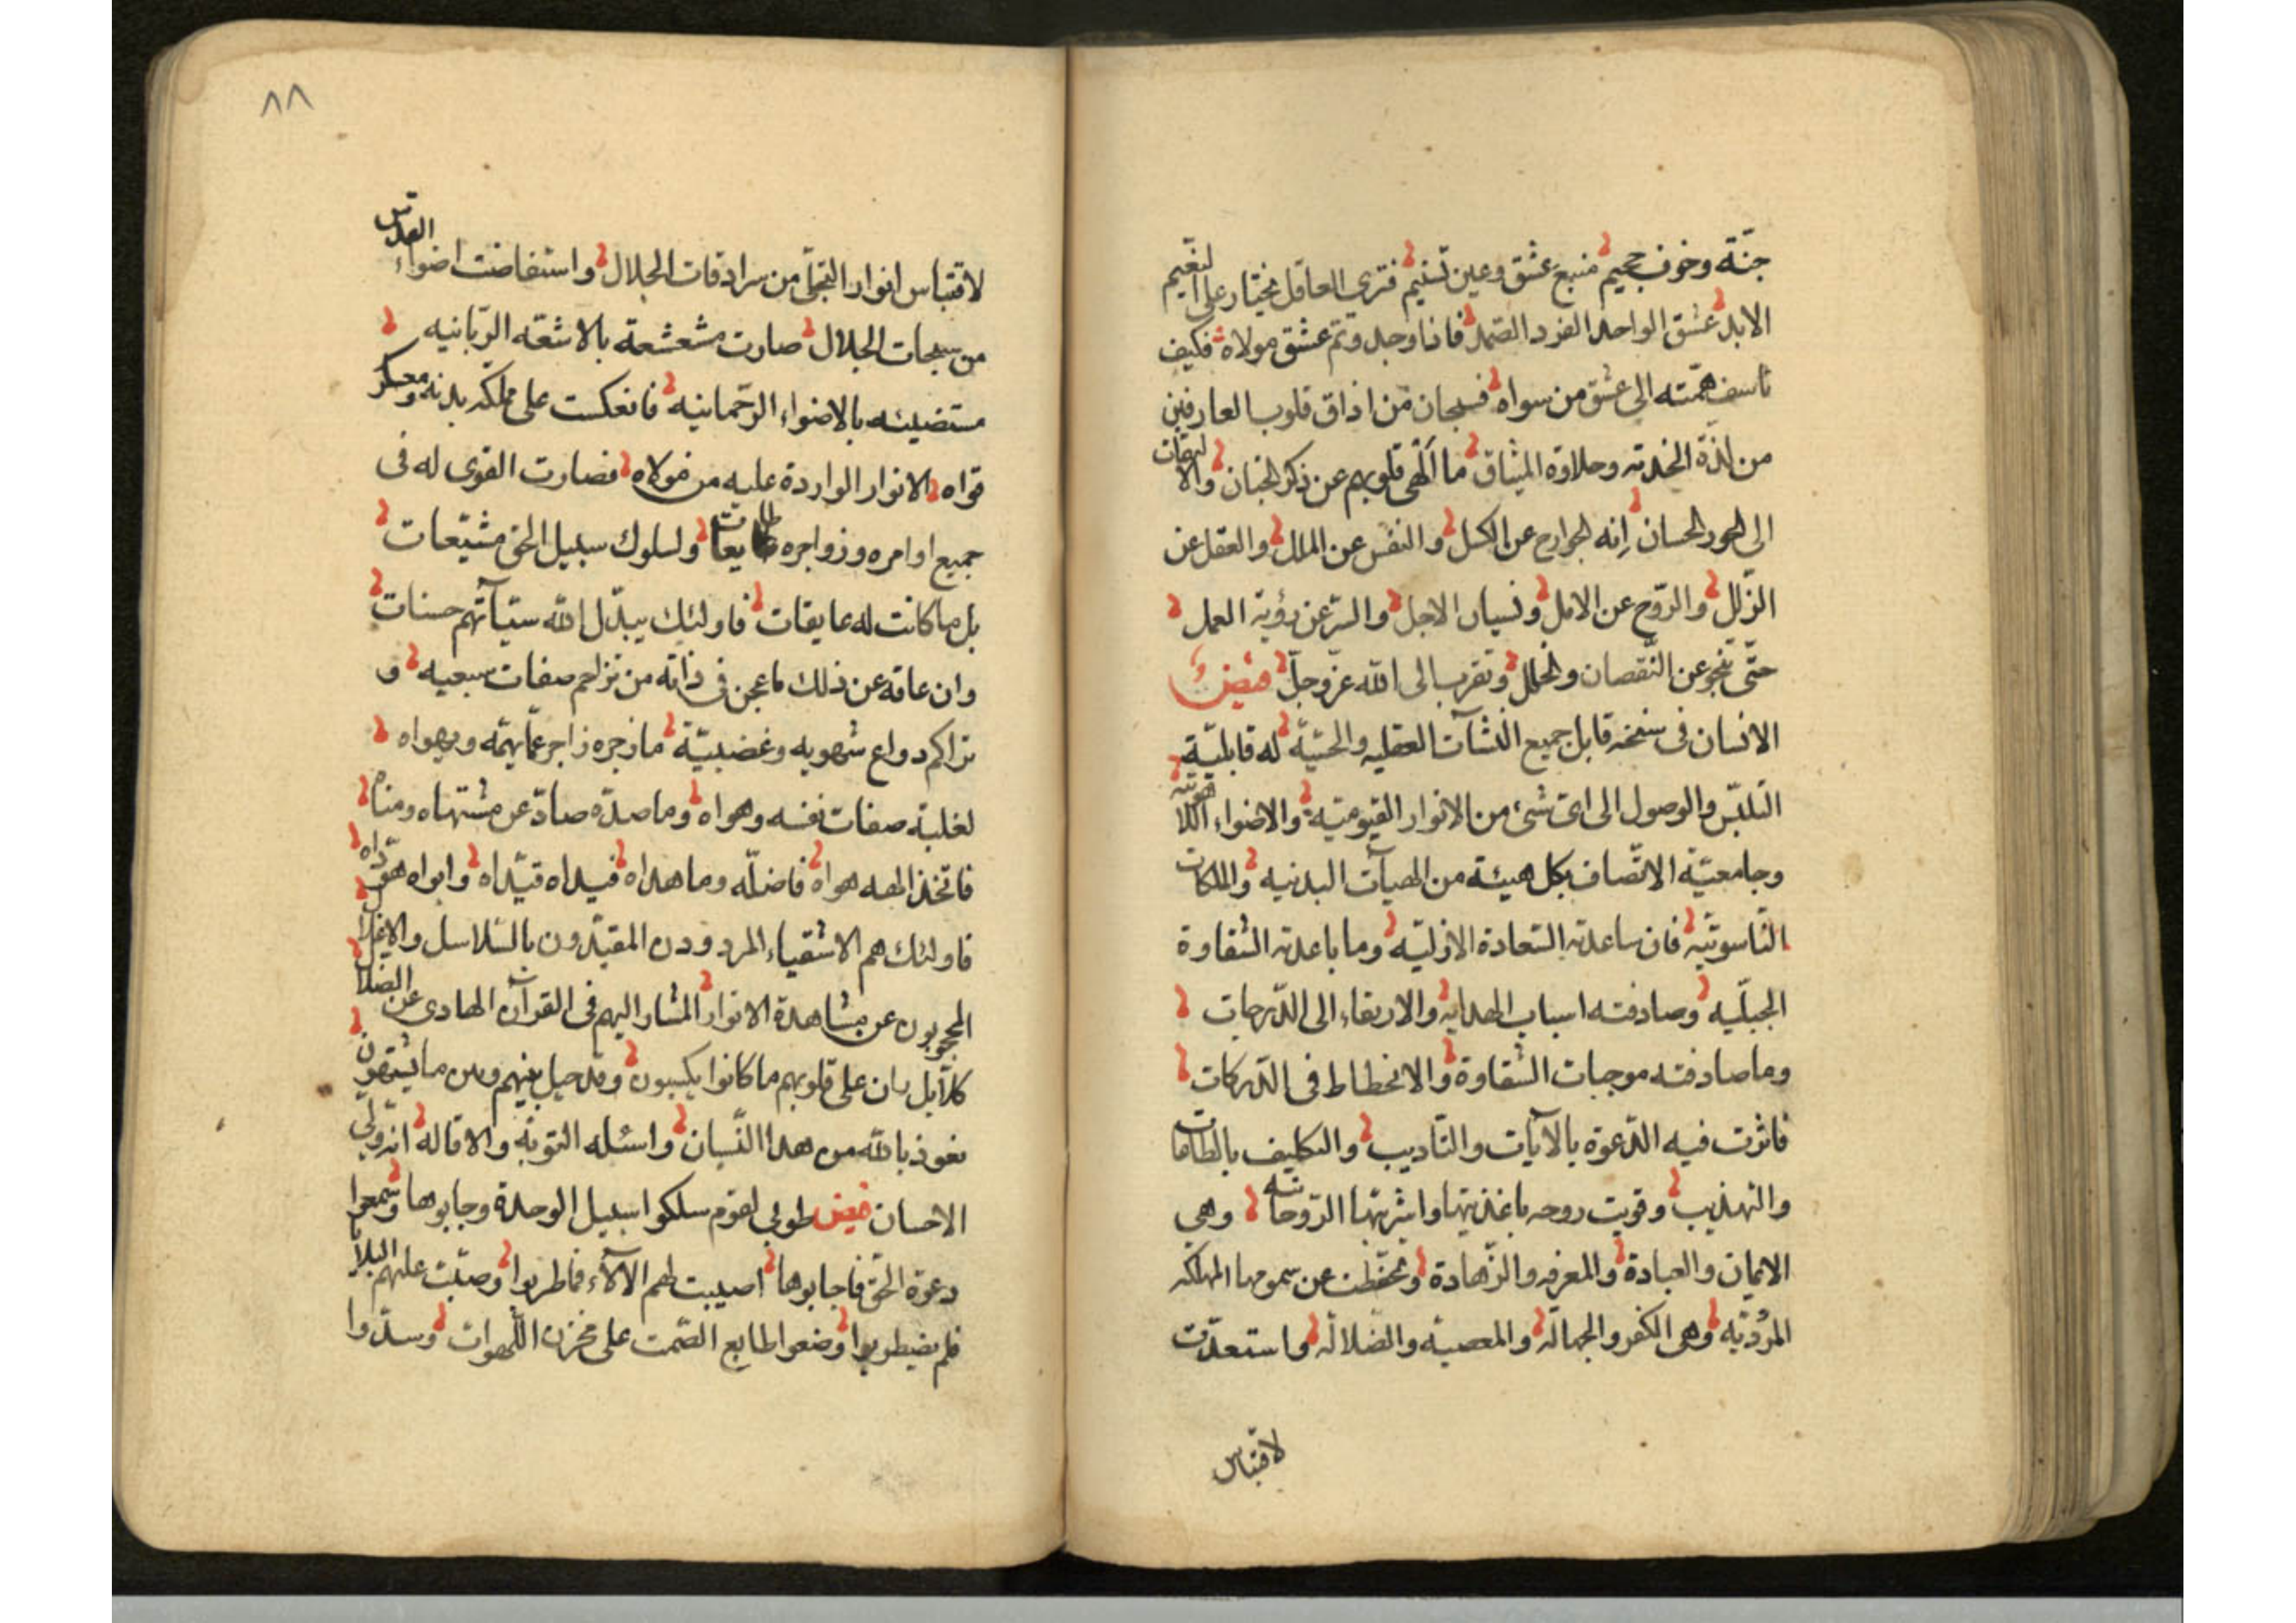 جنّة وخوف جحيم منبع عشق وعين تسنيم فترى العاقل يختار على النعيم
الابد عشق الواحد الفرد الصّمد فاذا وجد وتمّ عشق مولاه فكيف
تأسف همّته الى عشق من سواه فسبحان مَن اذاق قلوب العارفين
من لذّة الخدمة وحلاوة الميثاق ما الهى قلوبهم عن ذكر الجنان والالتفات
الى الحور الحسان اِنه الجوارح عن الكسل والنفس عن الملل والعقل عن
الزّلل والرّوح عن الامل ونسيان الاجل والسرّ عن رؤية العمل
حتّى تنجو عن النّقصان والخلل وتقرب الى الله عزّ وجلّ فيض
الانسان فى سنخه قابل جميع النشآت العقليه والحسّيّه له قابليّة
التلبّس والوصول الى اىّ شىء من الانوار القيوميّة والاضواء اللاهوتيّه
وجامعيّة الاتّصاف بكل هيئة من الهيآت البدنيه والملكات
النّاسوتيّه فان ساعدته السّعادة الازليّه وما باعدته الشّقاوة
الجبلّيه وصادفته اسباب الهدايه والارتقاء الى الدّرجات
وما صادفته موجبات الشّقاوة والانحطاط فى الدّركات
فاثرت فيه الدّعوة بالآيات والتأديب والتكليف بالطاعات
والتهذيب وقويت روحه باغذيتها واشربتها الرّوحانيّه وهى
الايمان والعبادة والمعرفه والزّهادة وتحفّظت عن سمومها المهلكه
المرديّه وهى الكفر والجهالة والمعصيه والضلاله واستعدّت
لاقتباس
٨٨
لاقتباس انوار التجلّى من سرادقات الجلال واستفاضت اضواء القدس
من سبحات الجلال صارت مشعشعة بالاشعّه الرّبّانيه
مستضيئه بالاضواء الرّحمانيه فانعكست على مملكه بدنه ومعسكر
قواه الانوار الواردة عليه من مولاه فصارت القوى له فى
جميع اوامره وزواجره طايعات ولسلوك سبيل الحق مشيّعات
بل ما كانت له عايقات فاولئك يبدّل الله سيّآتهم حسنات
وان عاقه عن ذلك ما عجن فى ذاته من تزاحم صفات سبعيه و
تراكم دواع شهويه وغضبيّة ما زجره زاجر عمّا يهمّه ويهواه
لغلبة صفات نفسه وهواه وما صدّه صادّ عن مشتهاه ومناه
فاتخذ الهه هواه فاضلّه وما هداه فيداه قيّداه وابواه هوّداه
فاولئك هم الاشقياء المردودون المقيّدون بالسّلاسل والاغلال
المحجوبون عن مشاهدة الانوار المشار اليهم فى القرآن الهادى عن الضلال
كلّا بل ران على قلوبهم ما كانوا يكسبون وقد حيل بينهم وبين ما يشتهون
نعوذ بالله من هذا النّسيان واسئله التوبة والاقاله انّه ولىّ
الاحسان فيض طوبى لقوم سلكوا سبيل الوحدة وجابوها وسمعوا
دعوة الحقّ فاجابوها اصيبت لهم الآلاء فما طربوا وصبّت عليهم البلايا
فلم يضطربوا وضعوا طابع الصّمت على مخزن اللّهوات وسدّوا